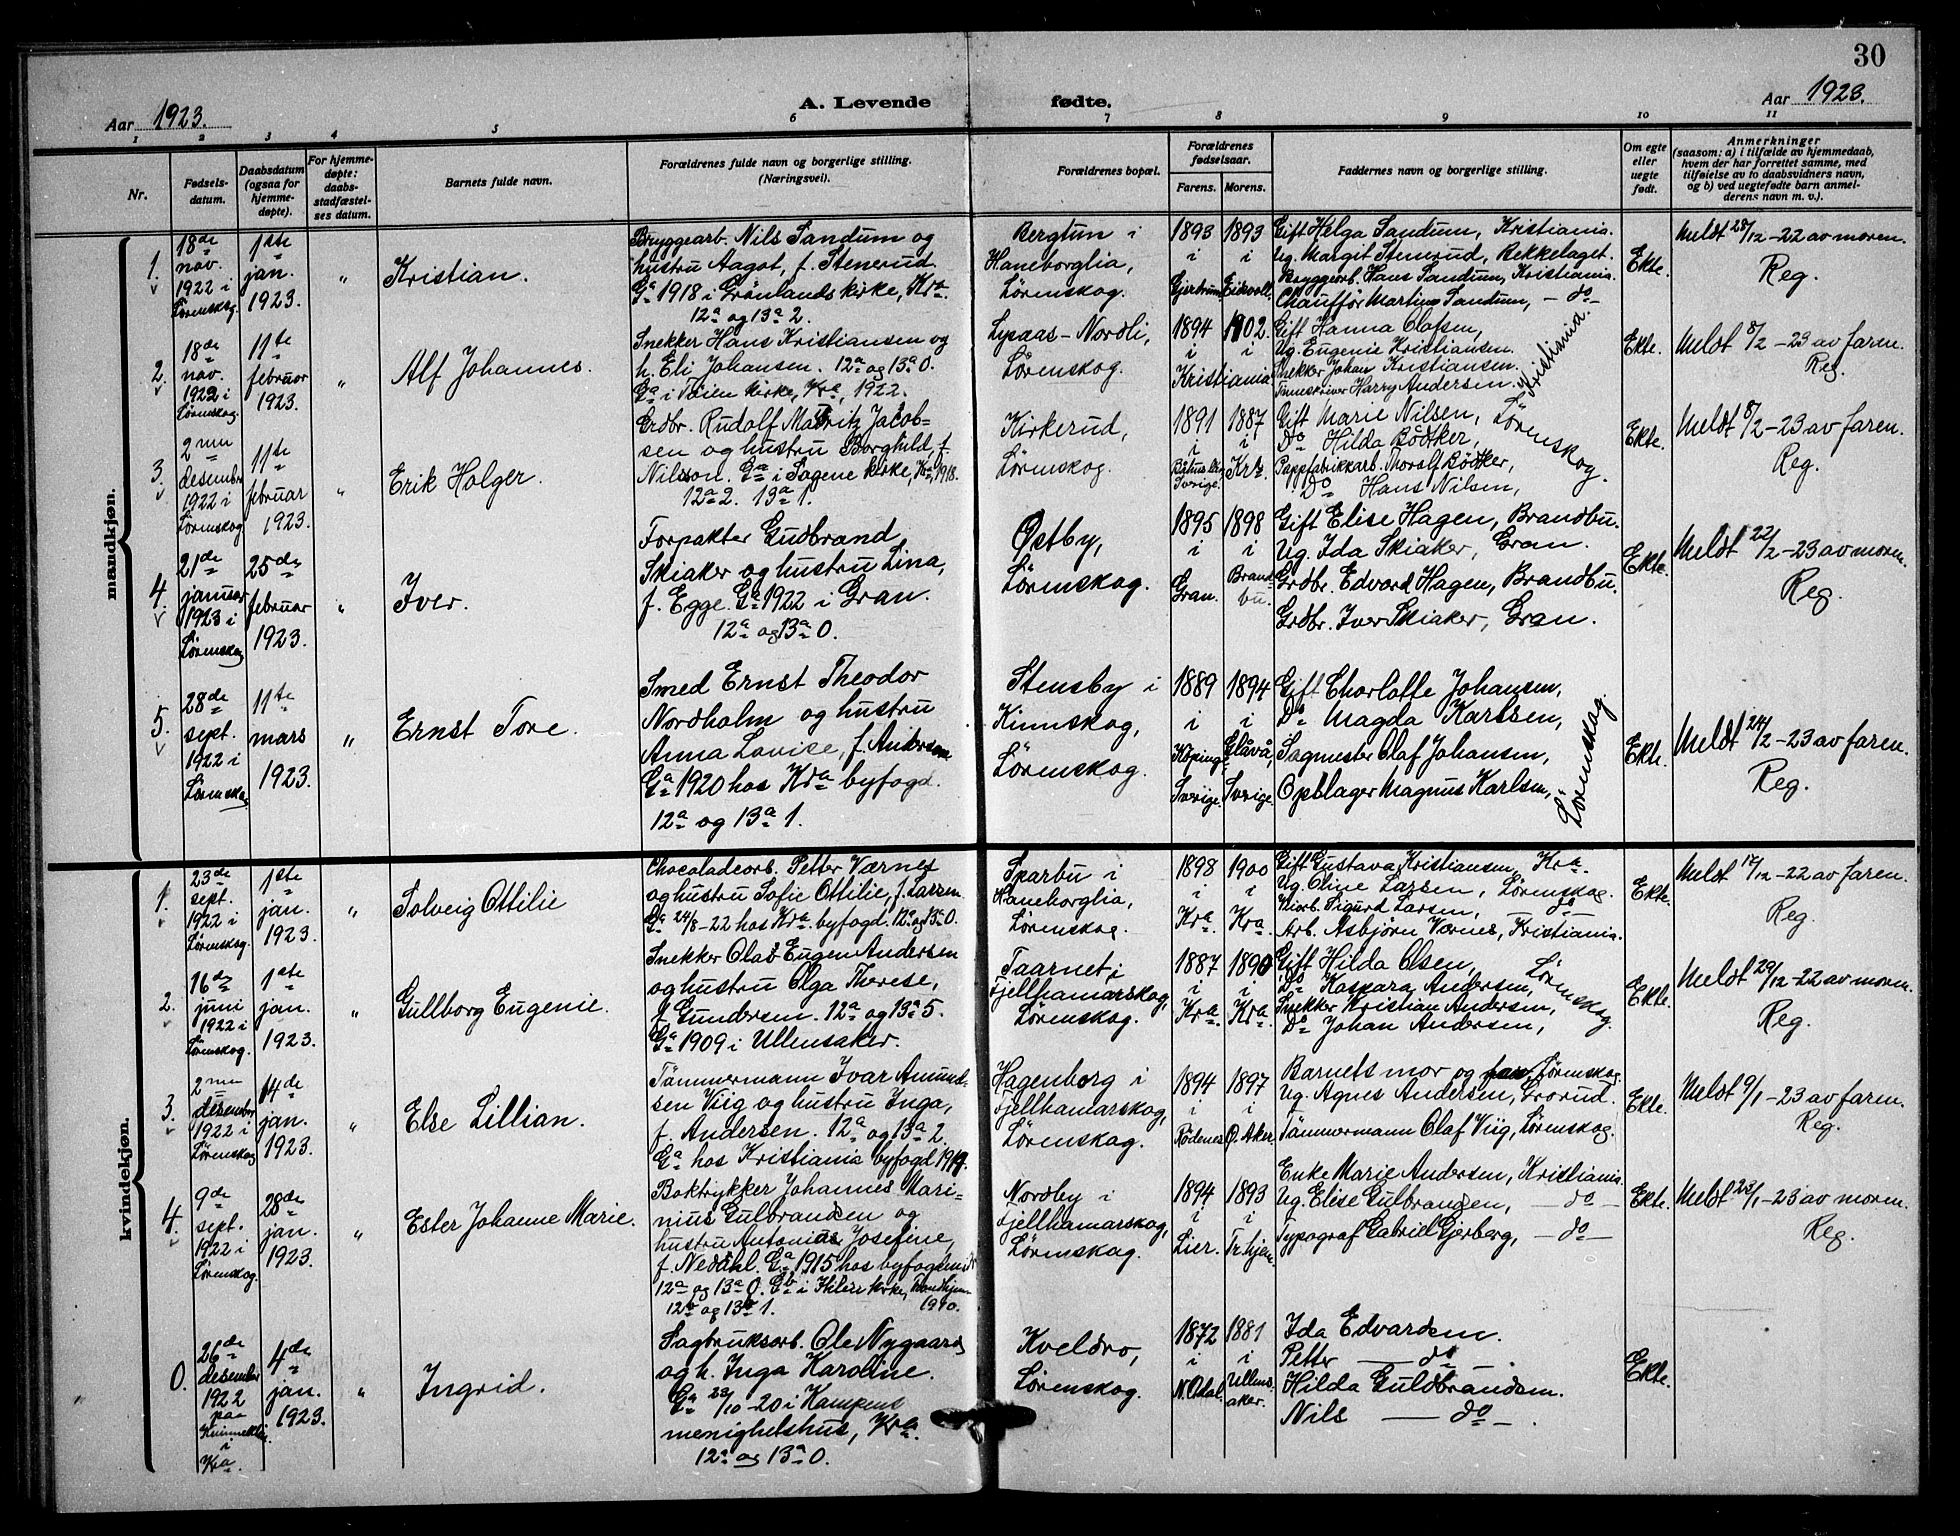 30
Aar 1923.
A. Levende fødte.
Aar 1923.
1 2 3 4 5 6 7 8 9 10 11
Nr.
Fødsels-
datum.
Daabsdatum
(ogsaa for
hjemme-
døpte).
For hjemme-
døpte:
daabs-
stadfæstel-
ses datum.
Barnets fulde navn.
Forældrenes fulde navn og borgerlige stilling.
(Næringsvei).
Forældrenes bopæl.
Forældrenes
fødselsaar.
Farens. Morens.
Faddernes navn og borgerlige stilling.
Om egte
eller
uegte
født.
Anmerkninger
(saasom: a) i tilfælde av hjemmedaab,
hvem der har forrettet samme, med
tilføielse av to daabsvidners navn,
og b) ved uegtefødte barn anmel-
derens navn m. v.).
mandkjøn.
1.
18de
nov.
1922 i
Lørenskog.
1ste
jan.
1923.
"
Kristian.
Bryggearb. Nils Sandum og
hustru Aagot, f. Stenerud
Ga 1918 i Grønlands kirke, Kra.
12a og 13a 2.
Bergtun i
Haneborglia,
Lørenskog.
1893 1893
i i
Gjerdrum Eidsvoll.
Gift Helga Sandum, Kristiania.
Ug. Margit Stenerud, Bekkelaget.
Bryggerarb. Hans Sandum, Kristiania.
Chauffør Martin Sandum, - do -
Ekte.
Meldt 28/12 - 22 av moren.
Reg.
2.
18de
nov.
1922 i
Lørenskog.
11te
februar
1923.
"
Alf Johannes.
Snekker Hans Kristiansen og
h. Eli Johansen. 12a og 13a 0.
Ga i Tøien kirke, Kra, 1922.
Lypaas - Nordli,
Lørenskog.
1894 1902.
i i
Kristiania.
Gift Hanna Olafsen,
Ug. Eugenie Kristiansen.
Snekker Johan Kristiansen.
Harry Andersen.
Kristiania.
Ekte.
Meldt 8/2 - 23 av faren.
Reg.
3.
2nen
desember
1922 i
Lørenskog
11te
februar
1923.
"
Erik Holger.
Grdbr. Rudolf Mauritz Jacob-
sen og hustru Borghild, f.
Nilsson. Ga i Sagene kirke, Kra, 1918.
12a 2. 13a 1.
Kirkerud,
Lørenskog.
1891 1887
i i
Kra
Sverige.
Gift Marie Nilsen,
Do Hilda Bödtker,
Pappfabrikkarb. Thoralf Bödtker,
Do Hans Nilsen,
Lørenskog.
Ekte.
Meldt 8/2 - 23 av faren.
Reg.
4.
21de
januar
1923 i
Lørenskog
25de
februar
1923.
"
Iver.
Forpakter Gudbrand
Skiaker og hustru Lina,
f. Egge. Ga 1922 i Gran.
12a og 13a 0.
Østby,
Lørenskog.
1895 1898
i i
Gran. Brand-
bu.
Gift Elise Hagen, Brandbu.
Ug. Ida Skiaker, Gran.
Grdbr. Edvard Hagen, Brandbu.
Grdbr. Iver Skiaker, Gran.
Ekte.
Meldt 22/2 - 23 av moren.
Reg.
5.
28de
sept.
1922 i
Lørenskog
11te
mars
1923.
"
Ernst Tore.
Smed Ernst Theodor
Nordholm og hustru
Anna Lovise, f. Andersen
Ga 1920 hos Kra byfogd.
12a og 13a 1.
Stensby i
Kinnskog,
Lørenskog.
1889 1894
i i
Köping Glåvå,
Sverige. Sverige.
Gift Charlotte Johansen,
Do Magda Karlsen,
Sagmester Olaf Johansen,
Oplager Magnus Karlsen,
Lørenskog.
Ekte.
Meldt 24/2 - 23 av faren.
Reg.
kvindekjøn.
1.
23de
sept.
1922 i
Lørenskog.
1ste
jan.
1923.
"
Solveig Ottilie
Chocoladearb. Petter Værnes
og hustru Sofie Ottilie, f. Larsen
Ga 24/8 - 22 hos Kra. byfogd. 12a og 13a 0.
Sparbu i
Haneborglia,
Lørenskog.
1898 1900
i i
Kra. Kra.
Gift Gustava Kristiansen, Kra.
Ug. Oline Larsen, Lørenskog.
Sigurd Larsen, do
Arb. Asbjørn Værnes, Kristiania.
Ekte.
Meldt 14/12 - 22 av faren.
Reg.
2.
16de
juni
1922 i
Lørenskog.
1ste
jan.
1923.
"
Gullborg Eugenie.
Snekker Olaf Eugen Andersen
og hustru Olga Therese,
f. Gundersen. 12a og 13a 5.
Ga 1909 i Ullensaker.
Taarnet i
Fjellhamarskog,
Lørenskog.
1887 1890
i i
Kra. Kra.
Gift Hilda Olsen,
Do Kaspara Andersen,
Snekker Kristian Andersen,
Do Johan Andersen,
Lørenskog.
Ekte.
Meldt 29/12 - 22 av moren.
Reg.
3.
2nen
desember
1922 i
Lørenskog
14de
jan.
1923.
"
Else Lillian.
Tømmermann Ivar Amund-
sen Viig og hustru Inga,
f. Andersen. 12a og 13a 2.
Ga hos Kristiania byfogd 1919.
Hagenborg i
Fjellhamarskog,
Lørenskog.
1894 1897
i i
Rödenes Ø. Aker.
Barnets mor og far, Lørenskog.
Ug. Agnes Andersen, Grorud.
Tømmermann Olaf Viig, Lørenskog.
Ekte.
Meldt 9/1 - 23 av faren.
Reg.
4.
9de
sept.
1922 i
Lørenskog
28de
jan.
1923.
"
Ester Johanne Marie.
Boktrykker Johannes Mari-
nius Gulbrandsen og
hustru Antonie Josefine,
f. Nedahl. Ga 1915 hos byfogden
12a og 13a 0. Gb i Ihlen kirke, Trondhjem
12b og 13b 1. 1920.
Nordby i
Fjellhamarskog,
Lørenskog.
1894 1893
i i
Lier. Tr.hjem
Enke Marie Andersen, Kristiania
Ug. Elise Gulbrandsen, - do -
Typograf Gabriel Gjerberg, - do -
Ekte.
Meldt 23/1 - 23 av moren.
Reg.
0.
26de
desember
1922
paa
i
Kra.
4de
jan.
1923.
"
Ingrid.
Sagbruksarb. Ole Nygaard
og h. Inga Karoline.
Ga 23/10 - 20 i Kampens
menighetshus, Kra.
12a og 13a 0.
Kveldro,
Lørenskog.
1872 1881
i i
N. Odal. Ullens-
aker.
Ida Edvardsen.
Petter - do - .
Hilda Guldbrandsen.
Nils - do - .
Ekte.